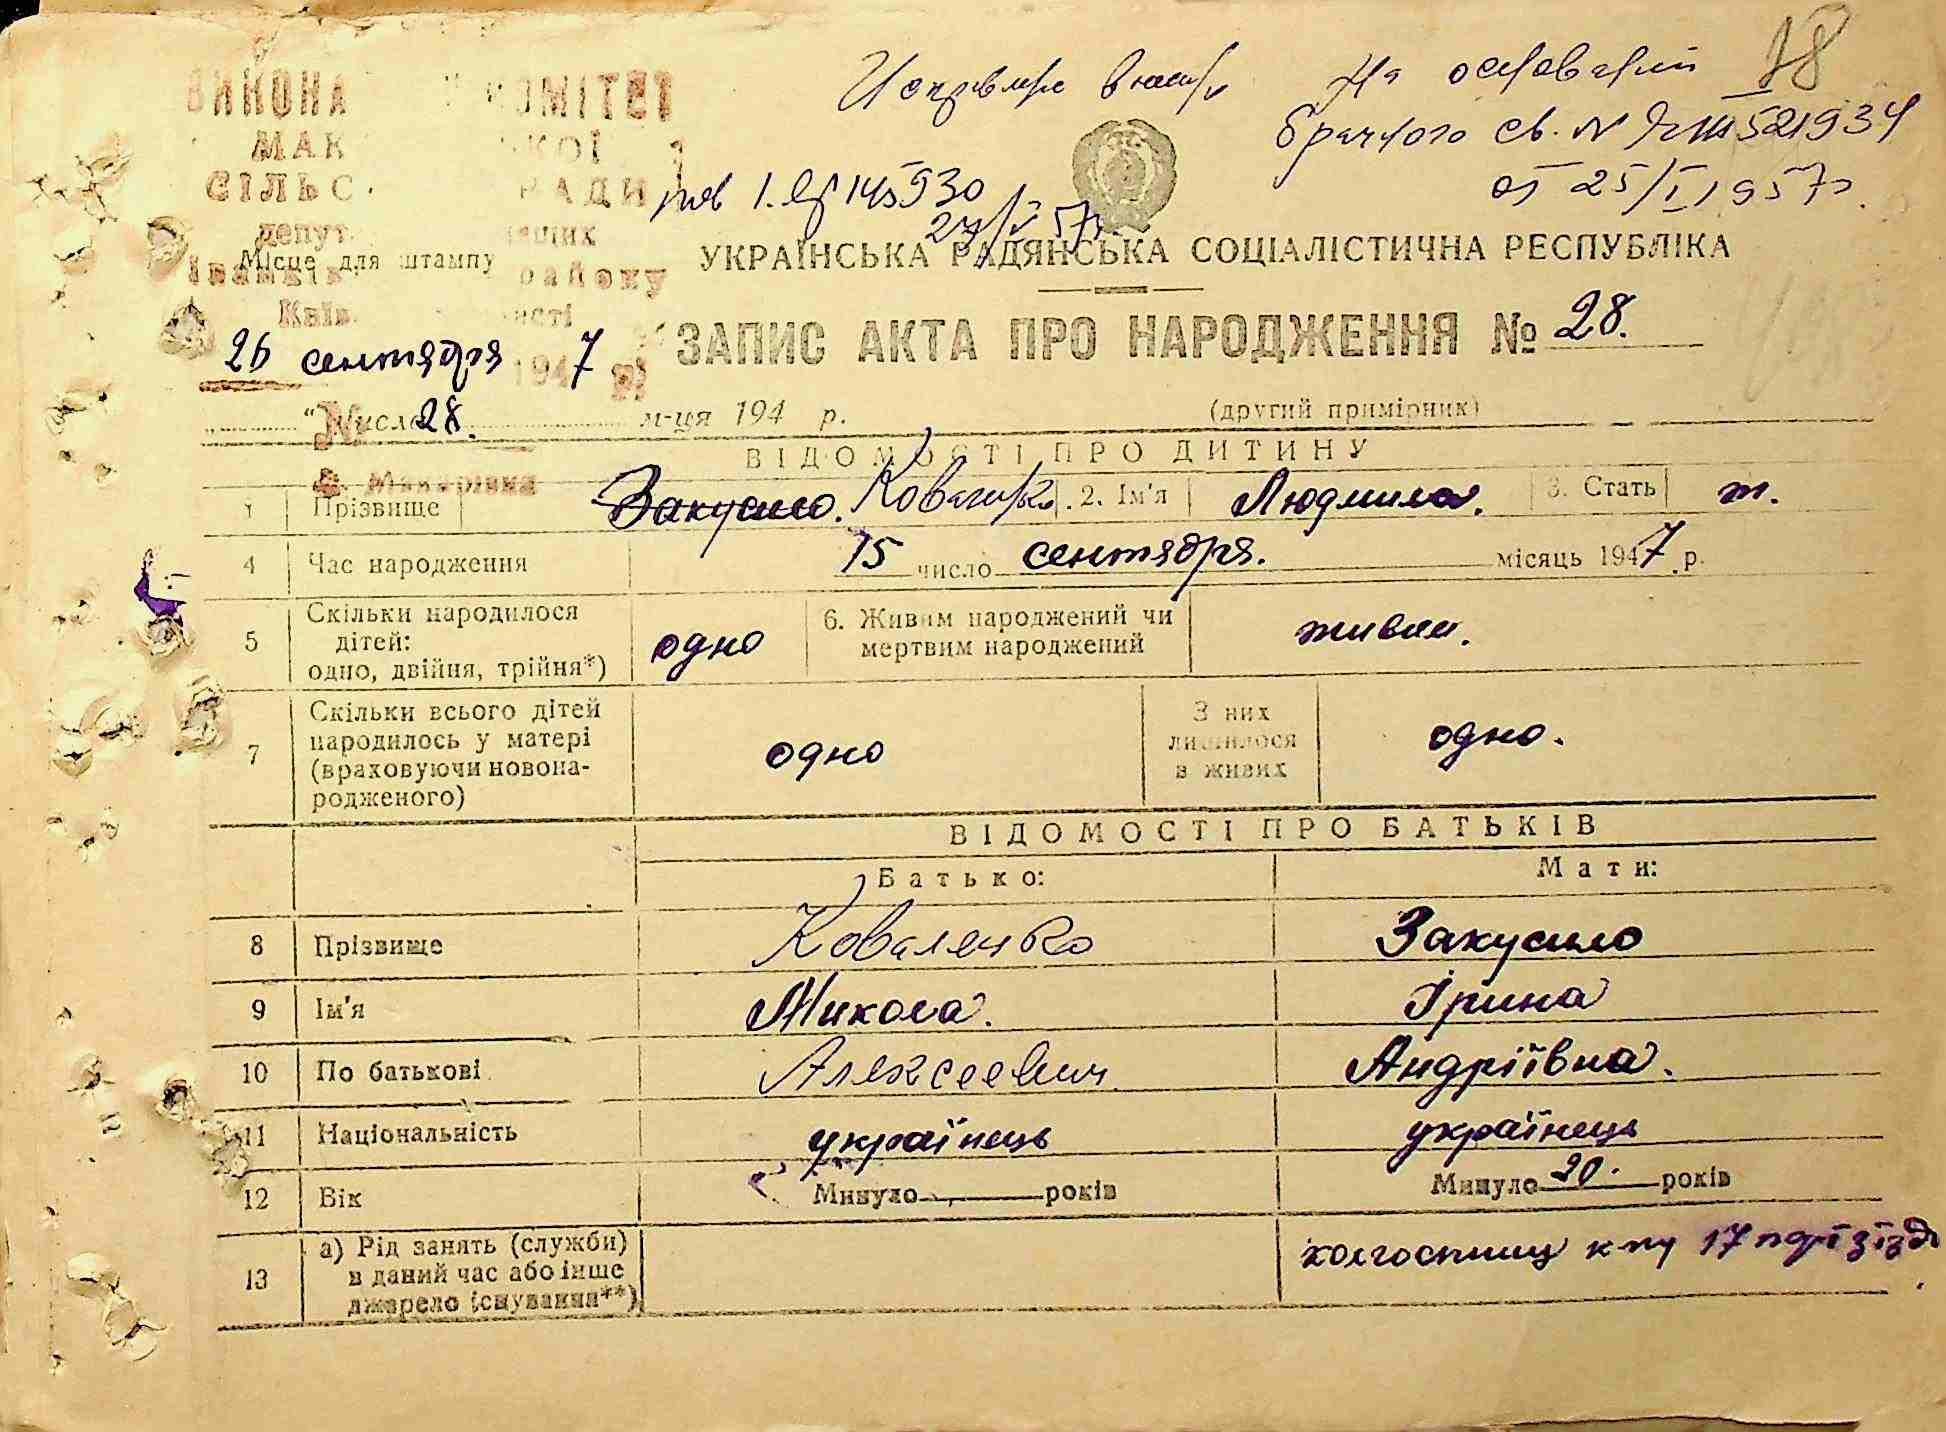 18
на основании
брачного св. №
521934
от 25/I 1957г.
МАК
КОЇ
СІЛЬС
РАДИ
депут
ящих
району
Місце для штампу
УКРАЇНСЬКА РАДЯНСЬКА СОЦІАЛІСТИЧНА РЕСПУБЛІКА
ЗАПИС АКТА ПРО НАРОДЖЕННЯ № 28.
26 сентября 1947 р.
Число 28. м-ця 194 р.
(другий примірник)
с. Макарівка
ВІДОМОСТІ ПРО ДИТИНУ
1 Прізвище Закусило. Коваленко. 2. Ім'я Людмила. 3. Стать ж.
4 Час народження 15 число сентября. місяць 1947 р.
5 Скільки народилося
дітей:
одно, двійня, трійня*) одно
6. Живим народжений чи
мертвим народжений живим.
7 Скільки всього дітей
народилось у матері
(враховуючи новона-
родженого) одно
З них
лишилося
в живих одно.
ВІДОМОСТІ ПРО БАТЬКІВ
Батько: Мати:
8 Прізвище Коваленко Закусило
9 Ім'я Микола. Ірина
10 По батькові Алексеевич Андріївна.
11 Національність українець українець
12 Вік Минуло років Минуло 20. років
13 а) Рід занять (служби)
в даний час або інше
джерело існування**) 17